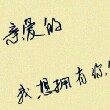 亲爱的
我想拥有你